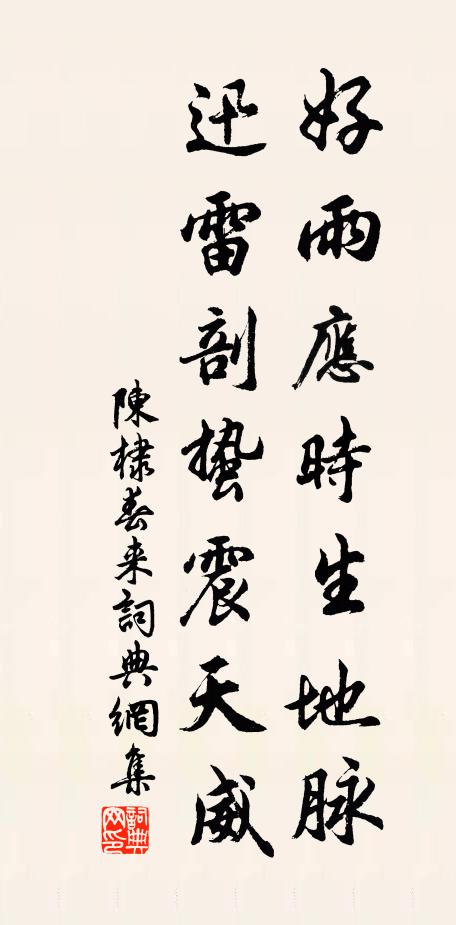 好雨應時生地脉
迅雷剖蟄震天威
陳棣春来詞典網集
詞典网印